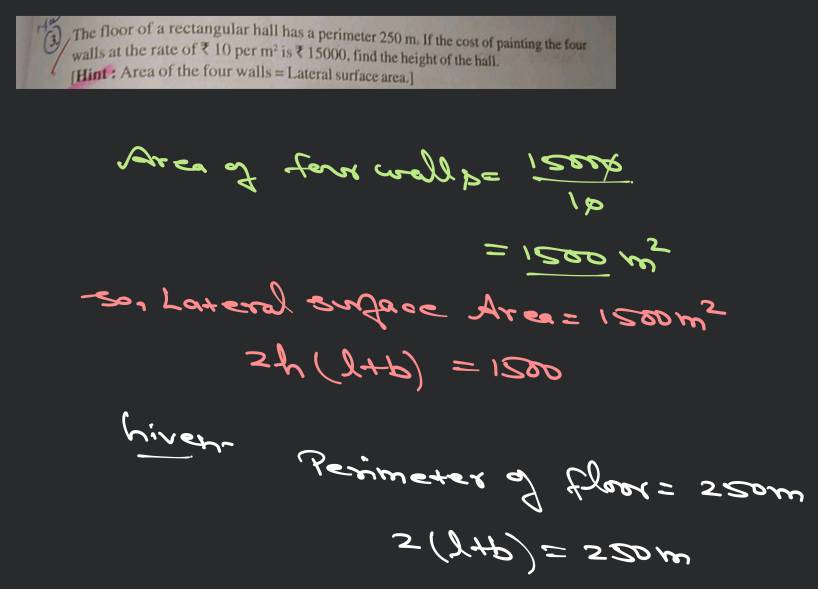 ③ The floor of a rectangular hall has a perimeter 250 m. If the cost of painting the four
walls at the rate of ₹ 10 per m² is ₹ 15000, find the height of the hall.
[Hint : Area of the four walls = Lateral surface area.]
Area of four walls = 15000/10
= 1500 m²
so, Lateral surface Area = 1500 m²
2h (l+b) = 1500
Given-
Perimeter of floor = 250m
2 (l+b) = 250 m